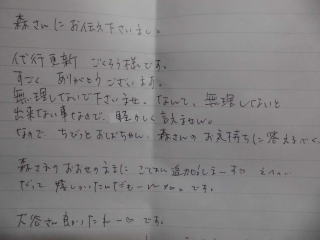 森さんにお伝え下さいまし。
代行更新 ごくろう様です。
すごく ありがとうございます。
無理しないで下さいませ。なんて、無理しないと
出来ない事なので、軽々しく言えません。
なので ちびっと 森さんのお気持ちに答えるべく
森さまのおおせのままに
だって 嬉しいんだも〜ん です。
大谷さん良かったね〜 です。